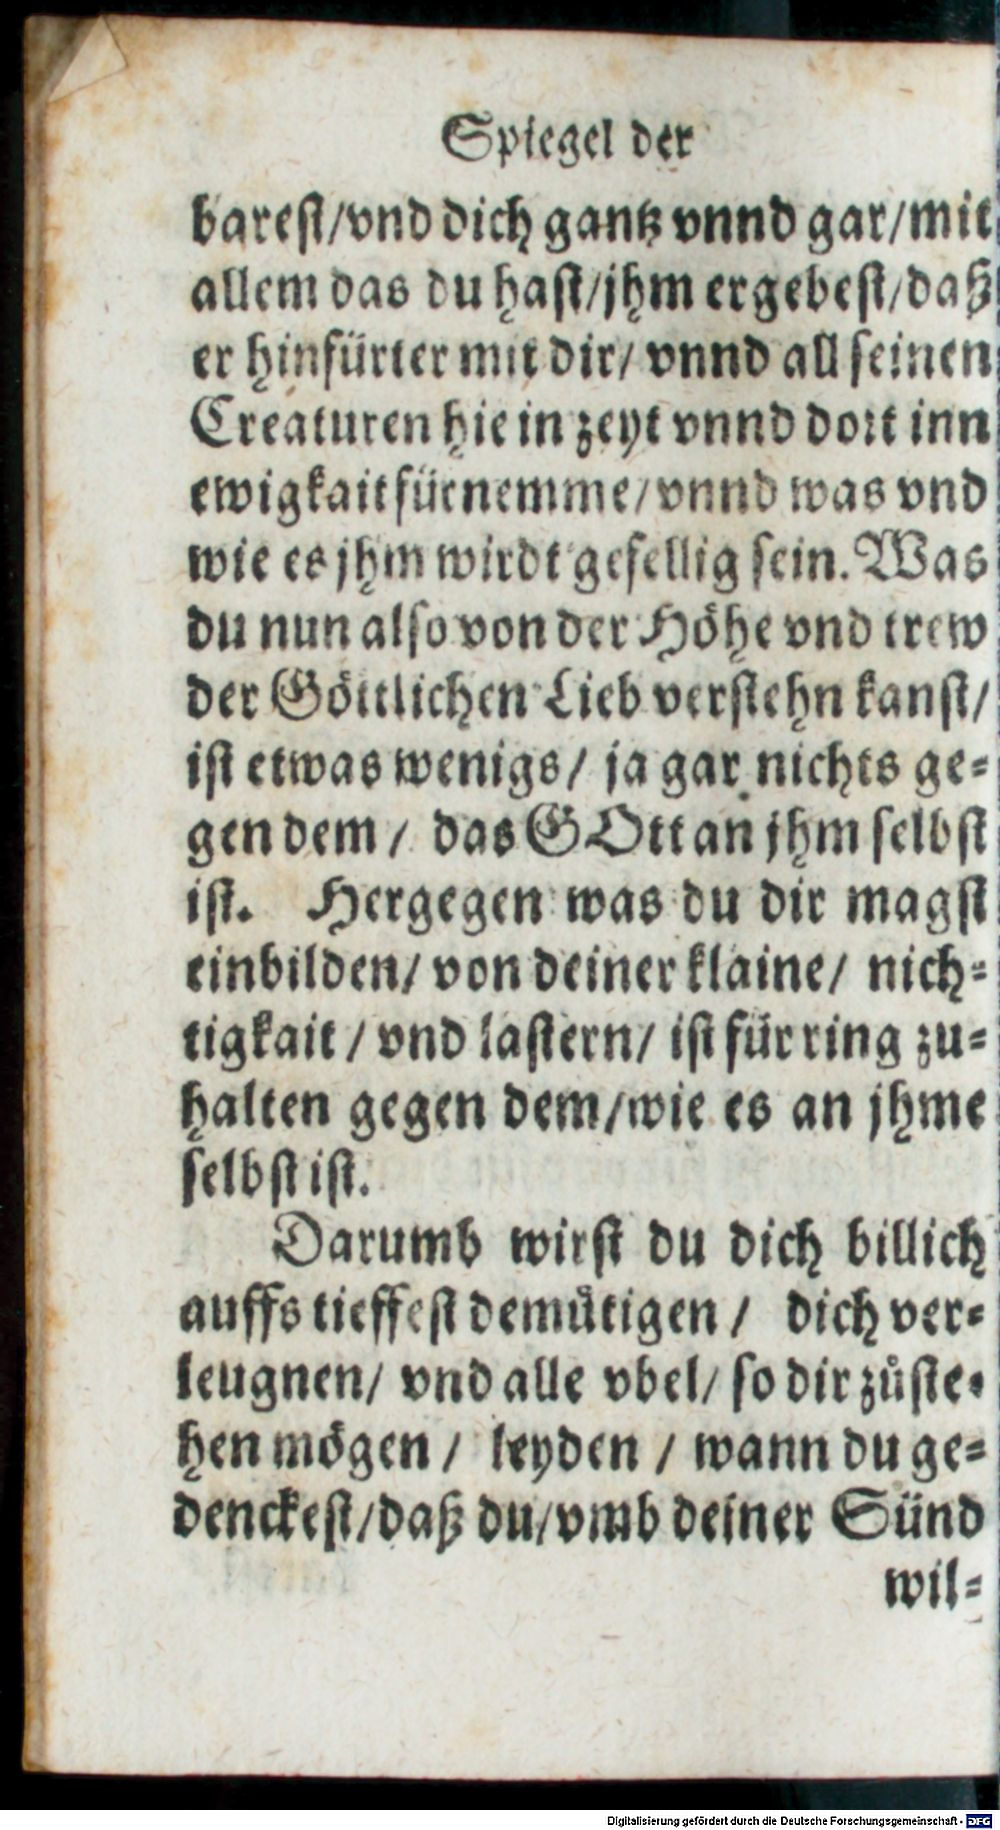 Spiegel der
barest/vnd dich gantz vnnd gar/mit
allem das du hast/jhm ergebest/daß
er hinfürter mit dir/ vnnd all seinen
Creaturen hie in zeyt vnnd dort inn
ewigkait fürnemme/vnnd was vnd
wie es jhm wirdt gefellig sein. Was
du nun also von der Höhe vnd trew
der Göttlichen Lieb verstehn kanst/
ist etwas wenigs/ ja gar nichts ge-
gen dem/ das GOtt an jhm selbst
ist. Hergegen was du dir magst
einbilden/ von deiner klaine/ nich-
tigkait/ vnd lastern/ ist für ring zu-
halten gegen dem/wie es an jhme
selbst ist.
Darumb wirst du dich billich
auffs tieffest demütigen/ dich ver-
leugnen/ vnd alle vbel/ so dir zůste-
hen mögen/ leyden/ wann du ge-
denckest/daß du/vmb deiner Sünd
wil-
Digitalisierung gefördert durch die Deutsche Forschungsgemeinschaft - DFG